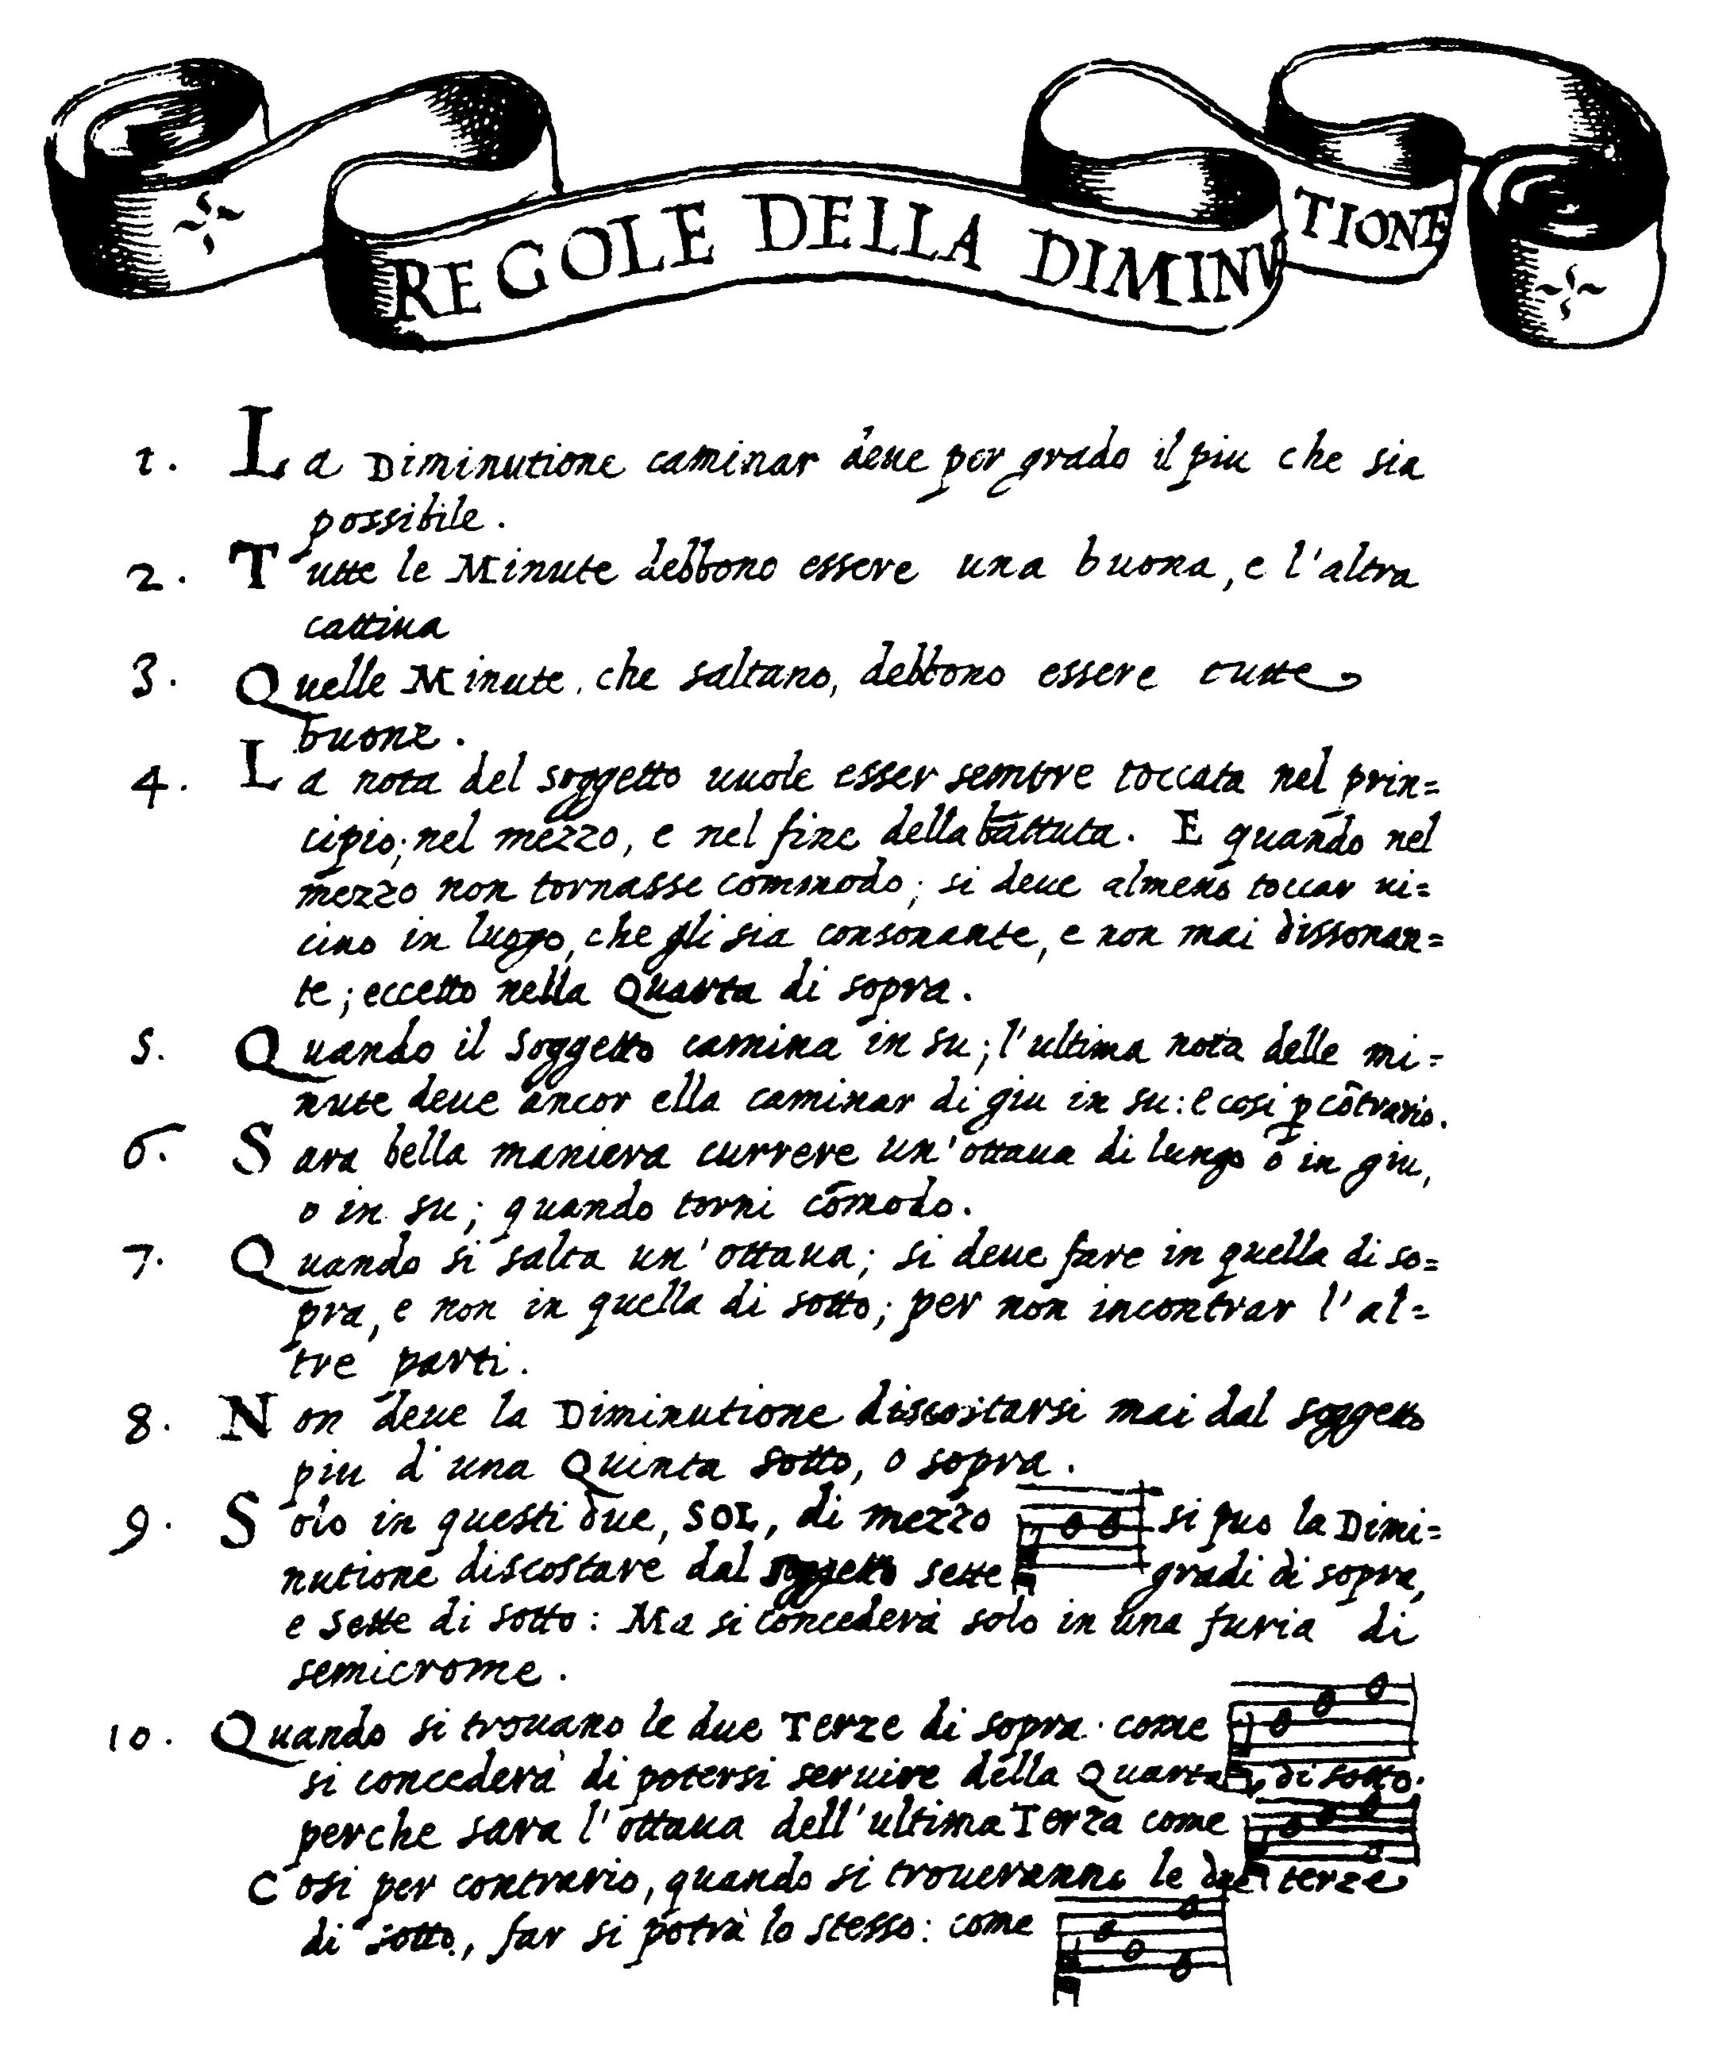 REGOLE DELLA DIMINVTIONE
1. La Diminutione caminar deue per grado il piu che sia
possibile.
2. Tutte le Minute debbono essere una buona, e l'altra
cattiua
3. Quelle Minute, che saltano, debbono essere tutte
buone.
4. La nota del soggetto uuole esser sempre toccata nel prin=
cipio; nel mezzo, e nel fine della battuta. E quando nel
mezzo non tornasse commodo; si deue almeno toccar ui=
cino in luogo, che gli sia consonante, e non mai dissonan=
te; eccetto nella Quarta di sopra.
5. Quando il soggetto camina in su; l'ultima nota delle mi=
nute deue ancor ella caminar di giu in su: e cosi ꝑ cōtrario.
6. Sara bella maniera currere un'ottaua di lungo o in giu,
o in su; quando torni cōmodo.
7. Quando si salta un'ottaua; si deue fare in quella di so=
pra, e non in quella di sotto; per non incontrar l'al=
tre parti.
8. Non deue la Diminutione discostarsi mai dal soggetto
piu d'una Quinta sotto, o sopra.
9. Solo in questi due, SOL, di mezzo si puo la Dimi=
nutione discostare dal soggetto sette gradi di sopra,
e sette di sotto: Ma si concederà solo in una furia di
semicrome.
10. Quando si trouano le due Terze di sopra. come
si concederà di potersi seruire della Quarta di sotto.
perche sara l'ottaua dell'ultima Terza come
Cosi per contrario, quando si troueranno le due terze
di sotto, far si potrà lo stesso: come